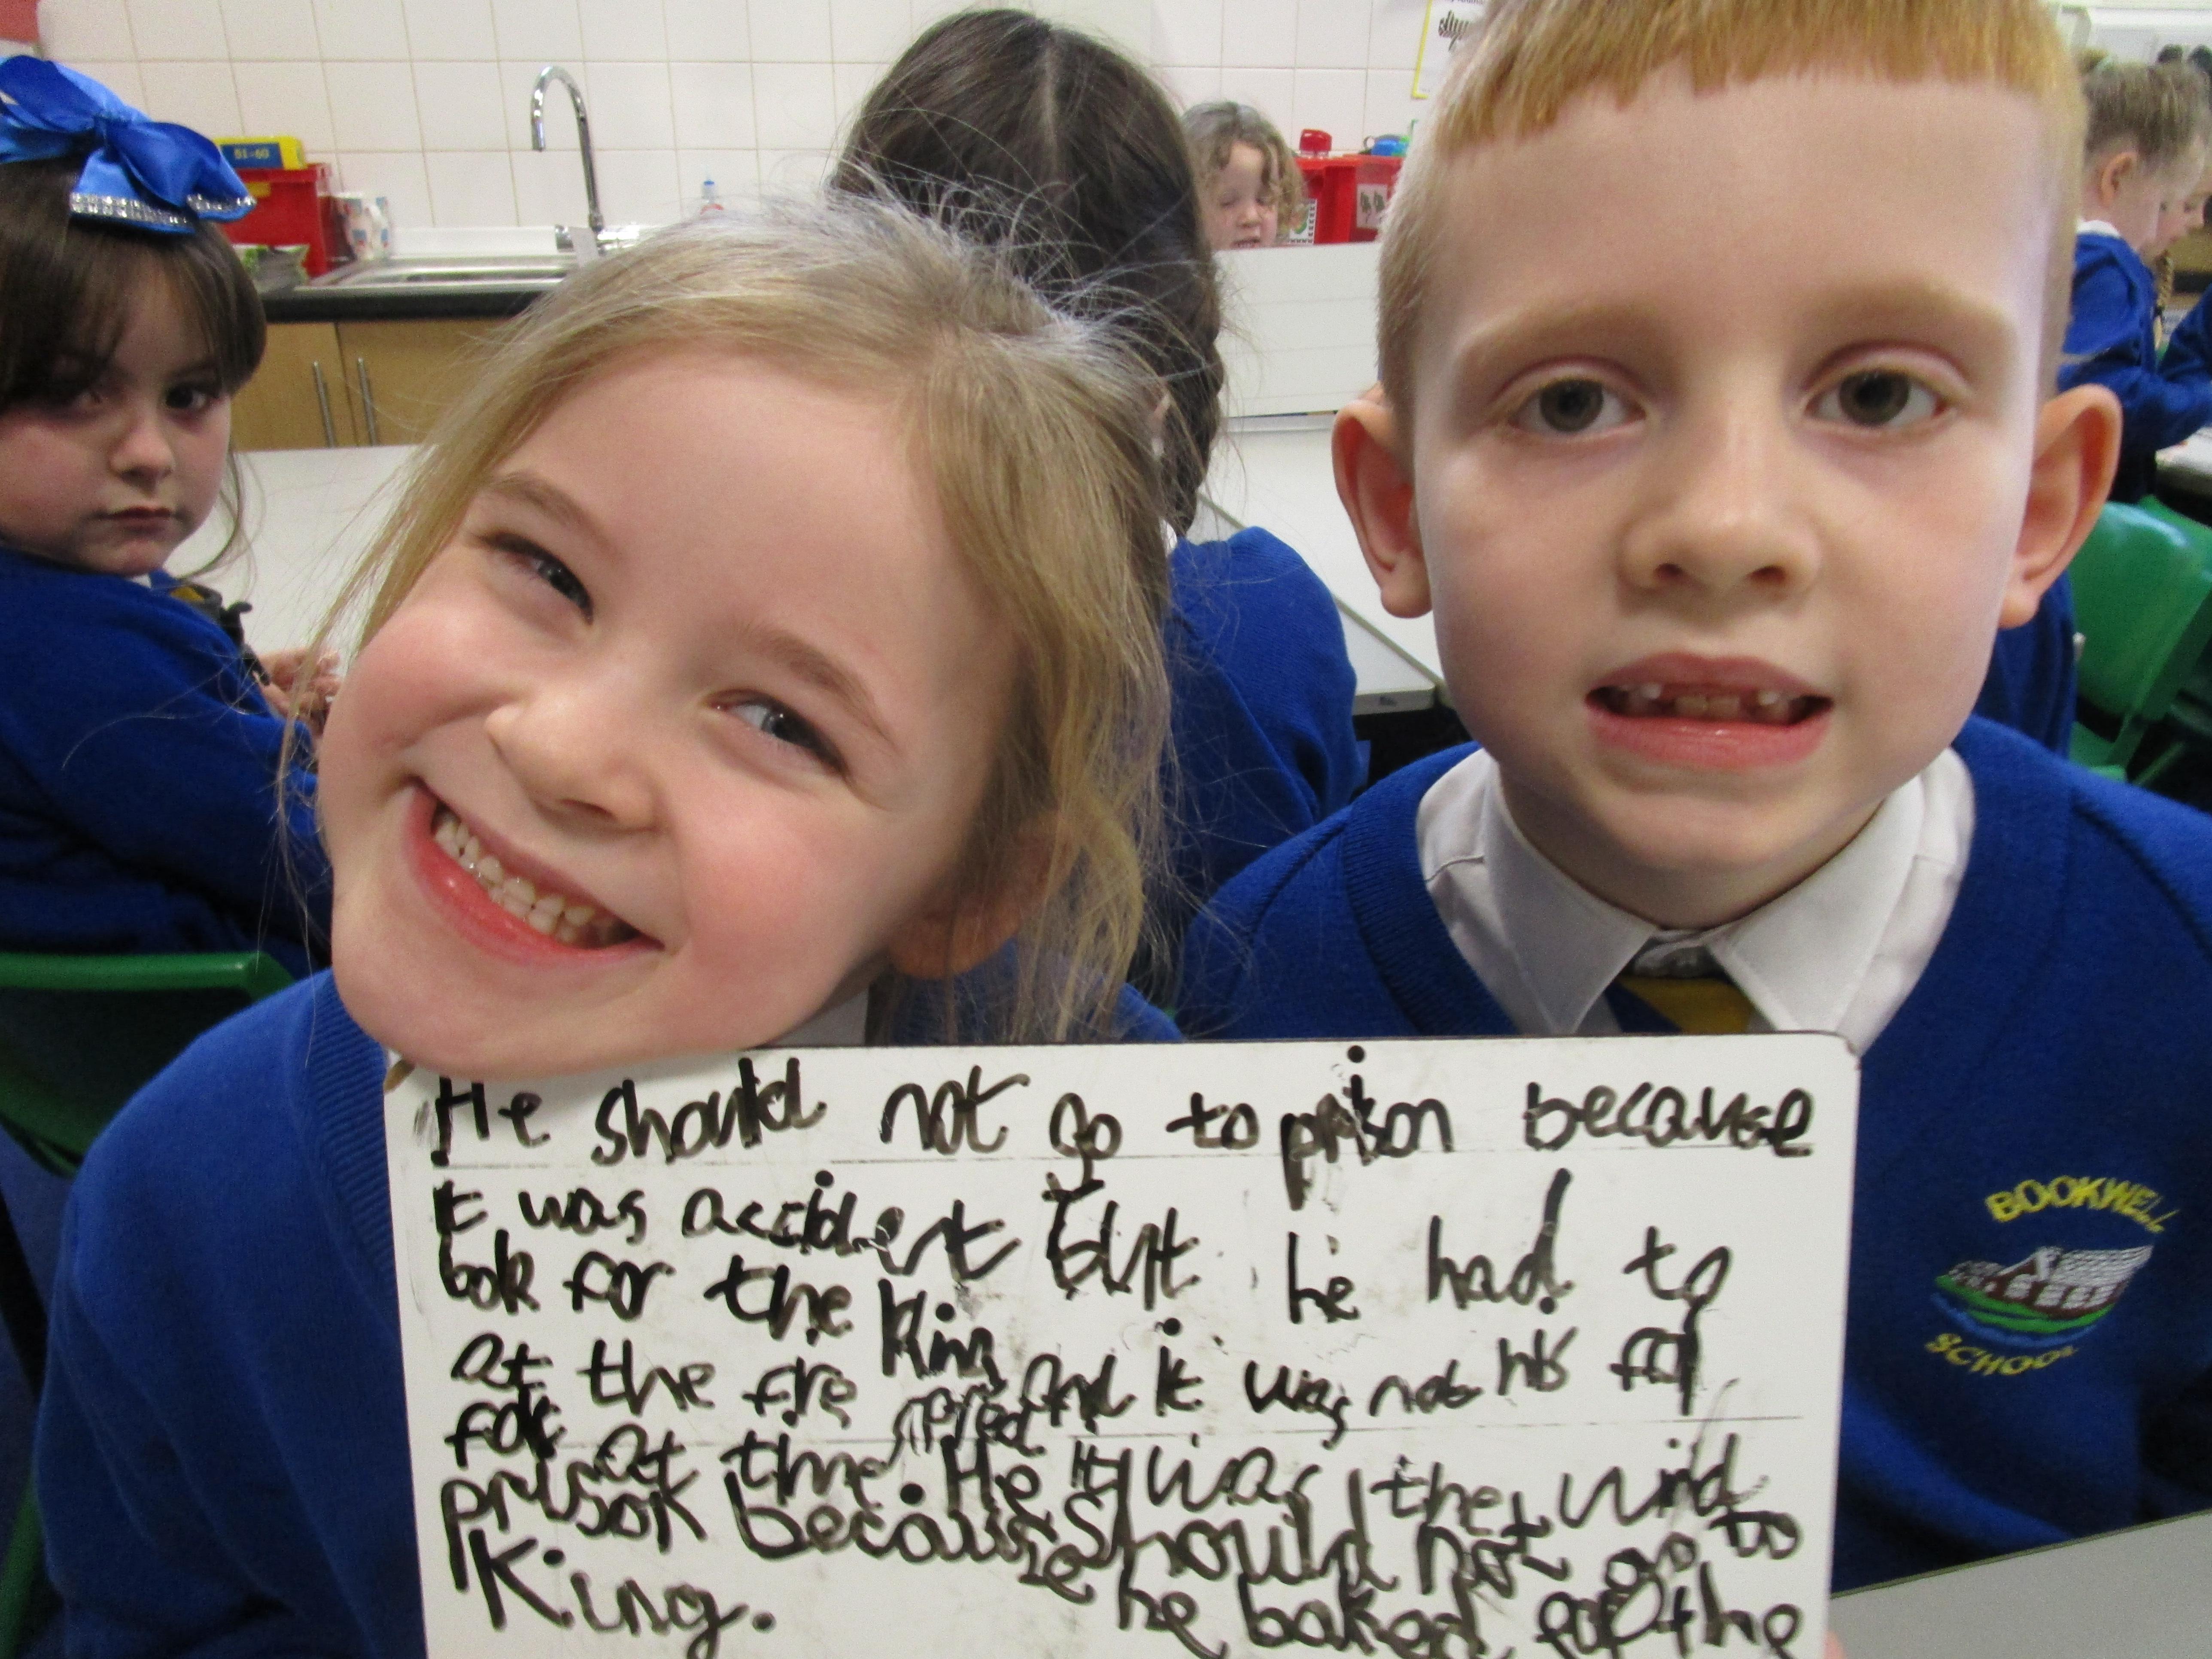 He should not go to prison because
it was accident but he had to
bok for the King
at the fire and it was not his fol
folt at the spred
time. He it was the wind
prison because should not go to
he baked for the
King.
BOOKWELL
SCHOOL
51-60